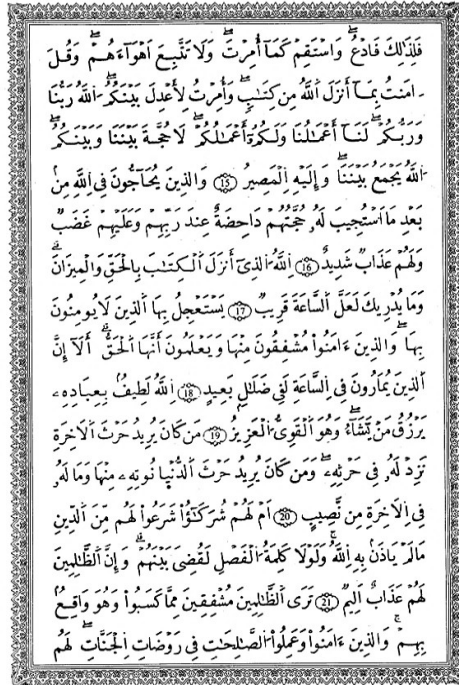 فَلِذَٰلِكَ فَادْعُ وَاسْتَقِمْ كَمَا أُمِرْتَ وَلَا تَتَّبِعَ اهْوَاءَهُمْ وَقُلَ
ـامَنتُ بِمَا أَنزَلَ اَللَّهُ مِن كِتَٰبٍ وَأُمِرْتُ لِأَعْدِلَ بَيْنَكُمُ اَللَّهُ رَبُّنَا
وَرَبُّكُمْ لَنَا أَعْمَٰلُنَا وَلَكُمُ أَعْمَٰلُكُمْ لَا حُجَّةَ بَيْنَنَا وَبَيْنَكُمُ
اَللَّهُ يَجْمَعُ بَيْنَنَا وَإِلَيْهِ اِلْمَصِيرُ 15 وَالذِينَ يُحَاجُّونَ فِي اِللَّهِ مِنۢ
بَعْدِ مَا اَسْتُجِيبَ لَهُ حُجَّتُهُمْ دَاحِضَةٌ عِندَ رَبِّهِمْ وَعَلَيْهِمْ غَضَبٌ
وَلَهُمْ عَذَابٌ شَدِيدٌ 16 اِللَّهُ اُلذِي أَنزَلَ اَلْكِتَٰبَ بِالْحَقِّ وَالْمِيزَانَ
وَمَا يُدْرِيكَ لَعَلَّ اَلسَّاعَةَ قَرِيبٌ 17 يَسْتَعْجِلُ بِهَا اَلذِينَ لَا يُومِنُونَ
بِهَا وَالذِينَ ءَامَنُواْ مُشْفِقُونَ مِنْهَا وَيَعْلَمُونَ أَنَّهَا اَلْحَقُّ أَلَا إِنَّ
اَلذِينَ يُمَارُونَ فِي اِلسَّاعَةِ لَفِي ضَلَٰلٍ بَعِيدٍ 18 اِللَّهُ لَطِيفٌ بِعِبَادِهِۦ
يَرْزُقُ مَنْ يَّشَاءُ وَهُوَ اَلْقَوِيُّ اُلْعَزِيزُ 19 مَن كَانَ يُرِيدُ حَرْثَ اَلَاخِرَةِ
نَزِدْ لَهُ فِي حَرْثِهِۦ وَمَن كَانَ يُرِيدُ حَرْثَ اَلدُّنْيَا نُوتِهِۦ مِنْهَا وَمَا لَهُ
فِي اِلَاخِرَةِ مِن نَّصِيبٍ 20 اَمْ لَهُمْ شُرَكَٰٓؤُاْ شَرَعُواْ لَهُم مِّنَ اَلدِّينِ
مَا لَمْ يَاذَنۢ بِهِ اِللَّهُ وَلَوْلَا كَلِمَةُ اُلْفَصْلِ لَقُضِيَ بَيْنَهُمْ وَإِنَّ اَلظَّٰلِمِينَ
لَهُمْ عَذَابٌ اَلِيمٌ 21 تَرَى اَلظَّٰلِمِينَ مُشْفِقِينَ مِمَّا كَسَبُواْ وَهُوَ وَاقِعٌ
بِهِمْ وَالذِينَ ءَامَنُواْ وَعَمِلُواْ اُلصَّٰلِحَٰتِ فِي رَوْضَاتِ اِلْجَنَّاتِ لَهُم